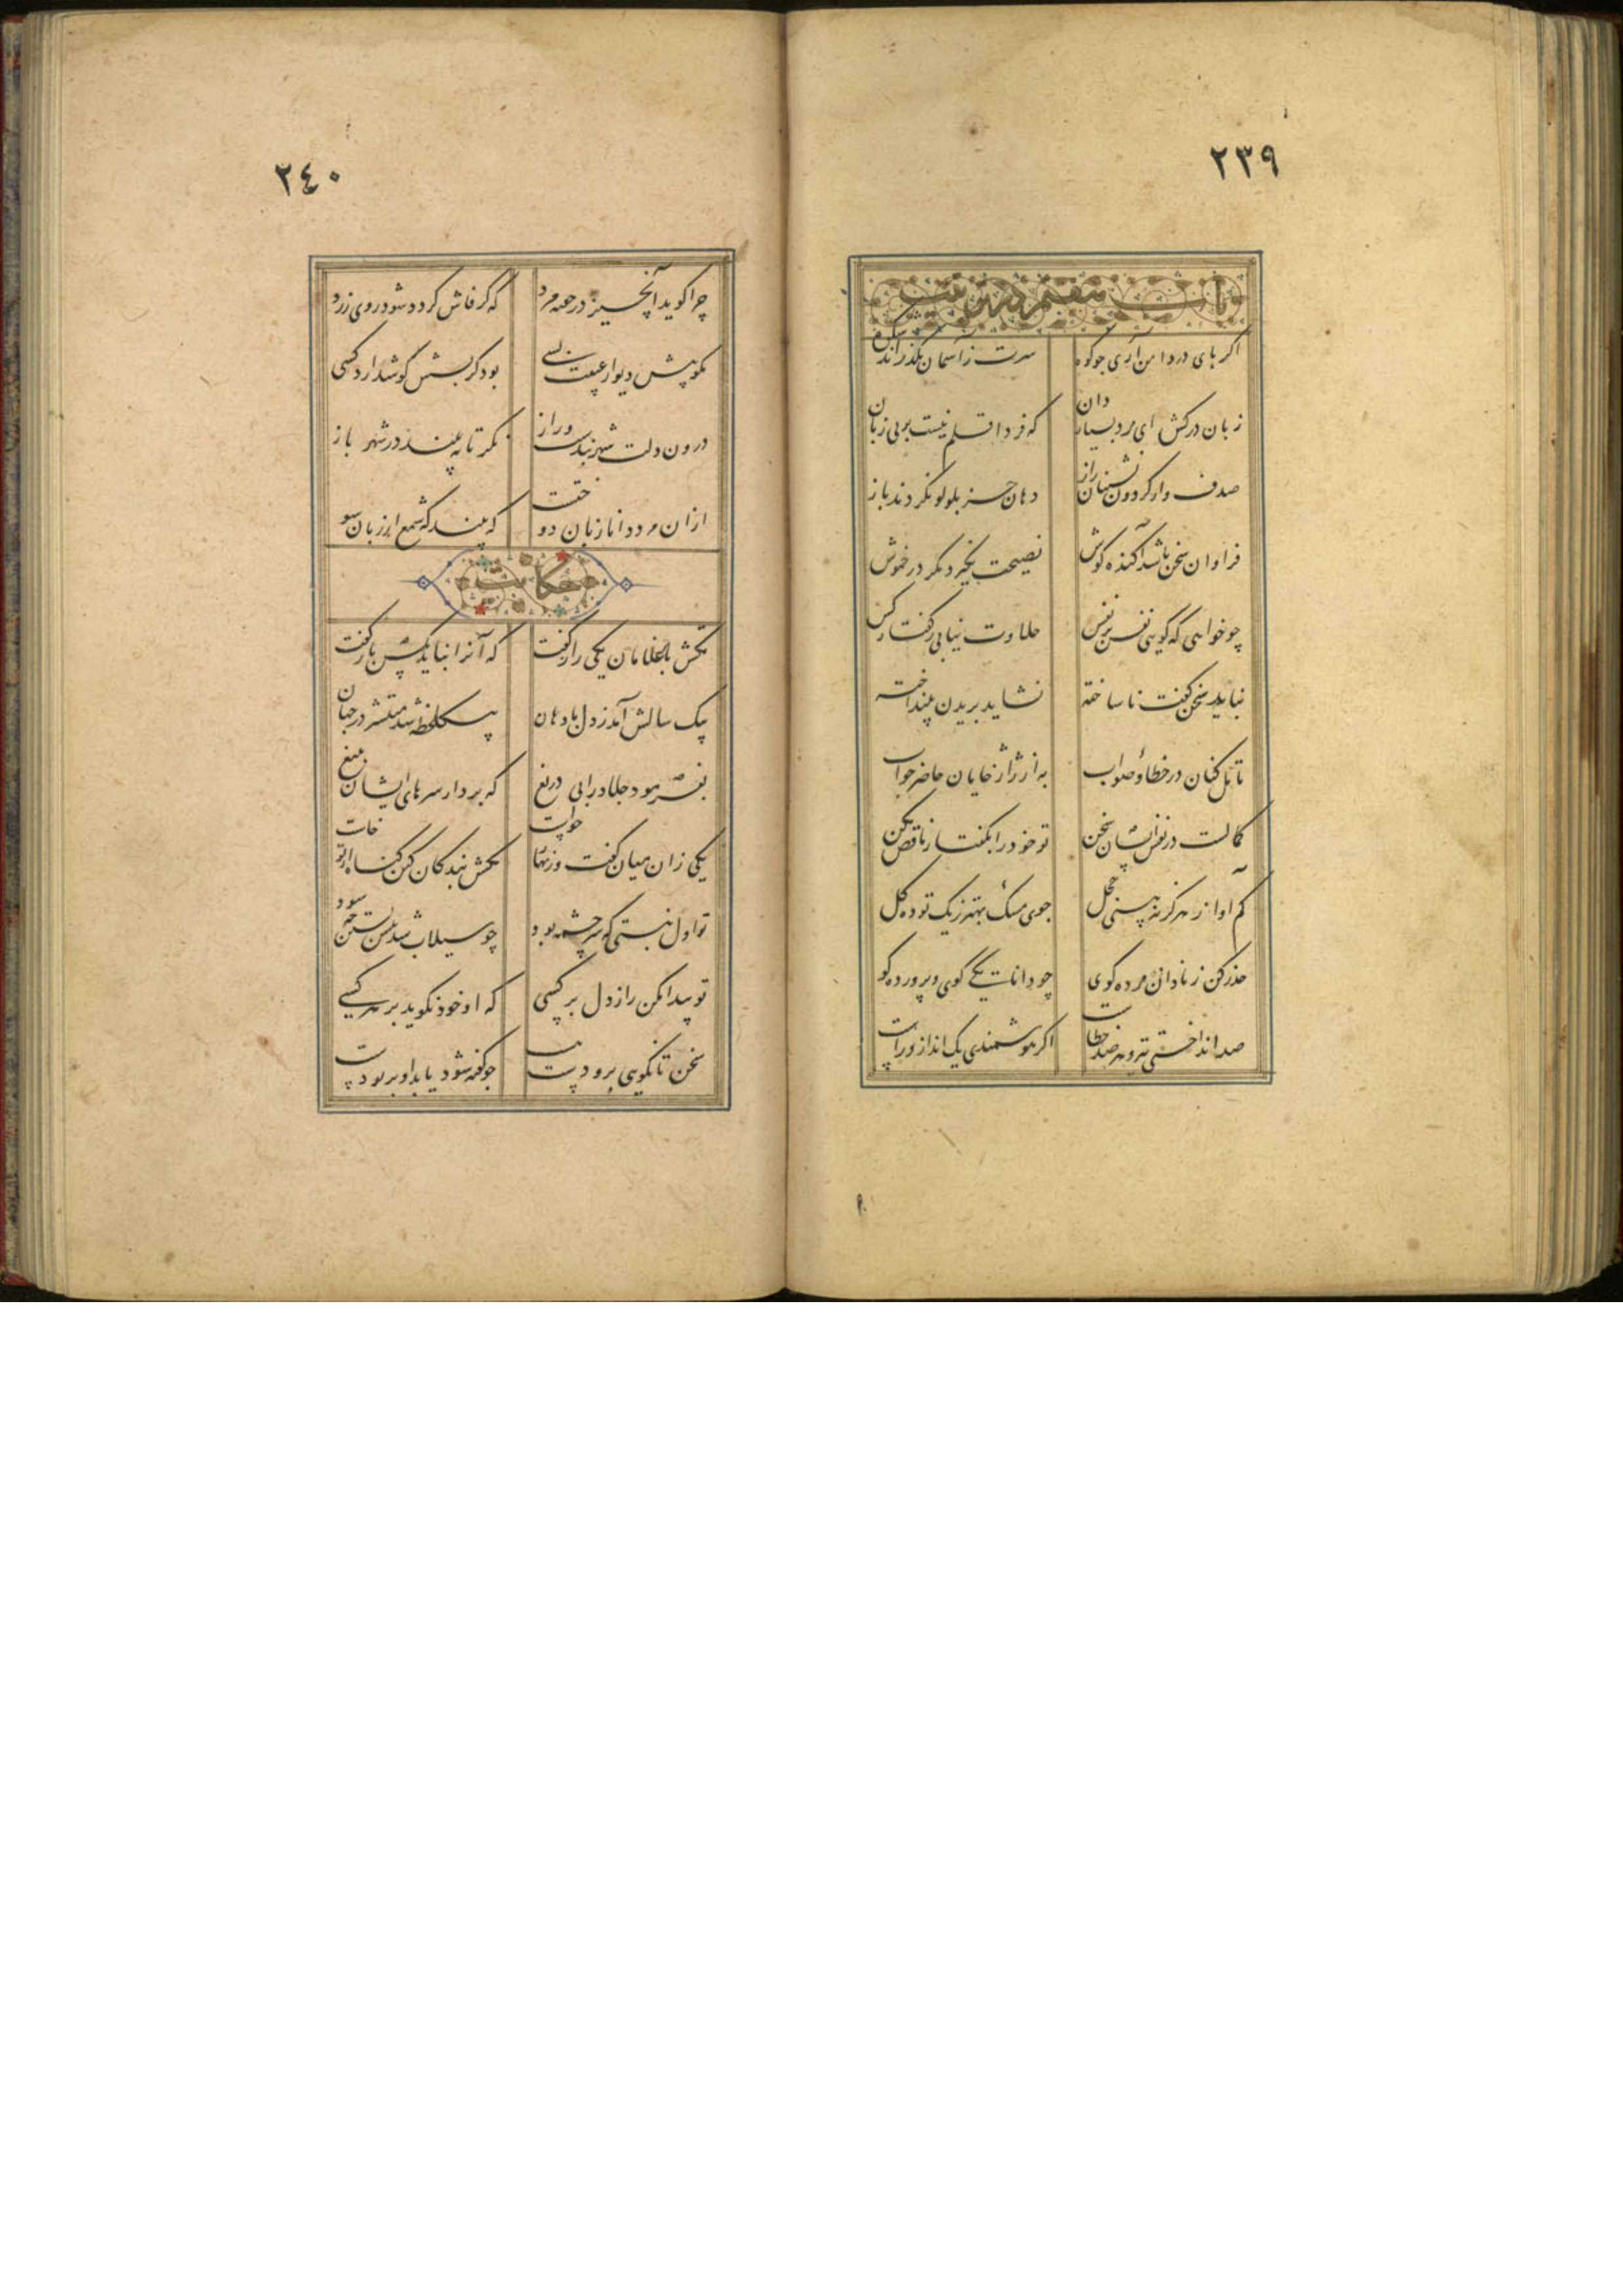 ٢٣٩
باب هفتم در تربیت
اکر پای در دامن آری جو کوه سرت ز آسمان بکذراند شکوه
زبان درکش ای مرد بسیار دان که فردا قلم نیست بر بی زبان
صدف وار کردون نشینان راز دهان جز بلولو نکردند باز
فراوان سخن باشد آکنده کوش نصیحت نکیرد مکر در خموش
چو خواهی که کویی نفس بر نفس حلاوت نیابی ز کفتار کس
نباید سخن کفت ناساخته نشاید بریدن نینداخته
تامل کنان در خطا و صواب به از ژاژخایان حاضر جواب
کمالست در نفس انسان سخن تو خود را بکفتار ناقص مکن
کم آواز هرکز نه بینی خجل جوی مشک بهتر ز یک توده کل
حذر کن ز نادان ده مرده کوی چو دانا یکی گوی و پرورده کو
صد انداختی تیر و هر صد خطاست اکر هوشمندی یک انداز و راست
٢٤٠
چرا کوید آن چیز در خفیه مرد که کر فاش کردد شود روی زرد
مکو پیش دیوار غیبت بسی بود کز پسش کوش دارد کسی
درون دلت شهر بندست و راز نکر تا نه بیند در شهر باز
ازان مرد دانا زبان دوختست که بیند که شمع از زبان سو
حکایت
تکش با غلامان یکی راز کفت که آنرا نباید بکس باز کفت
بیک سالش آمد ز دل با دهان بیک لحظه شد منتشر در جهان
بفرمود جلاد را بی دریغ که بردار سرهای ایشان بتیغ
یکی زان میان کفت و زنهار خواست مکش بندکان کین کناه از تو خاست
تو اول نبستی که سرچشمه بود چو سیلاب شد پیش بستن چه سود
تو پیدا مکن راز دل بر کسی که او خود نکوید بر هر کسی
سخن تا نکویی برو دست هست جو کفته شود یابد او بر تو دست